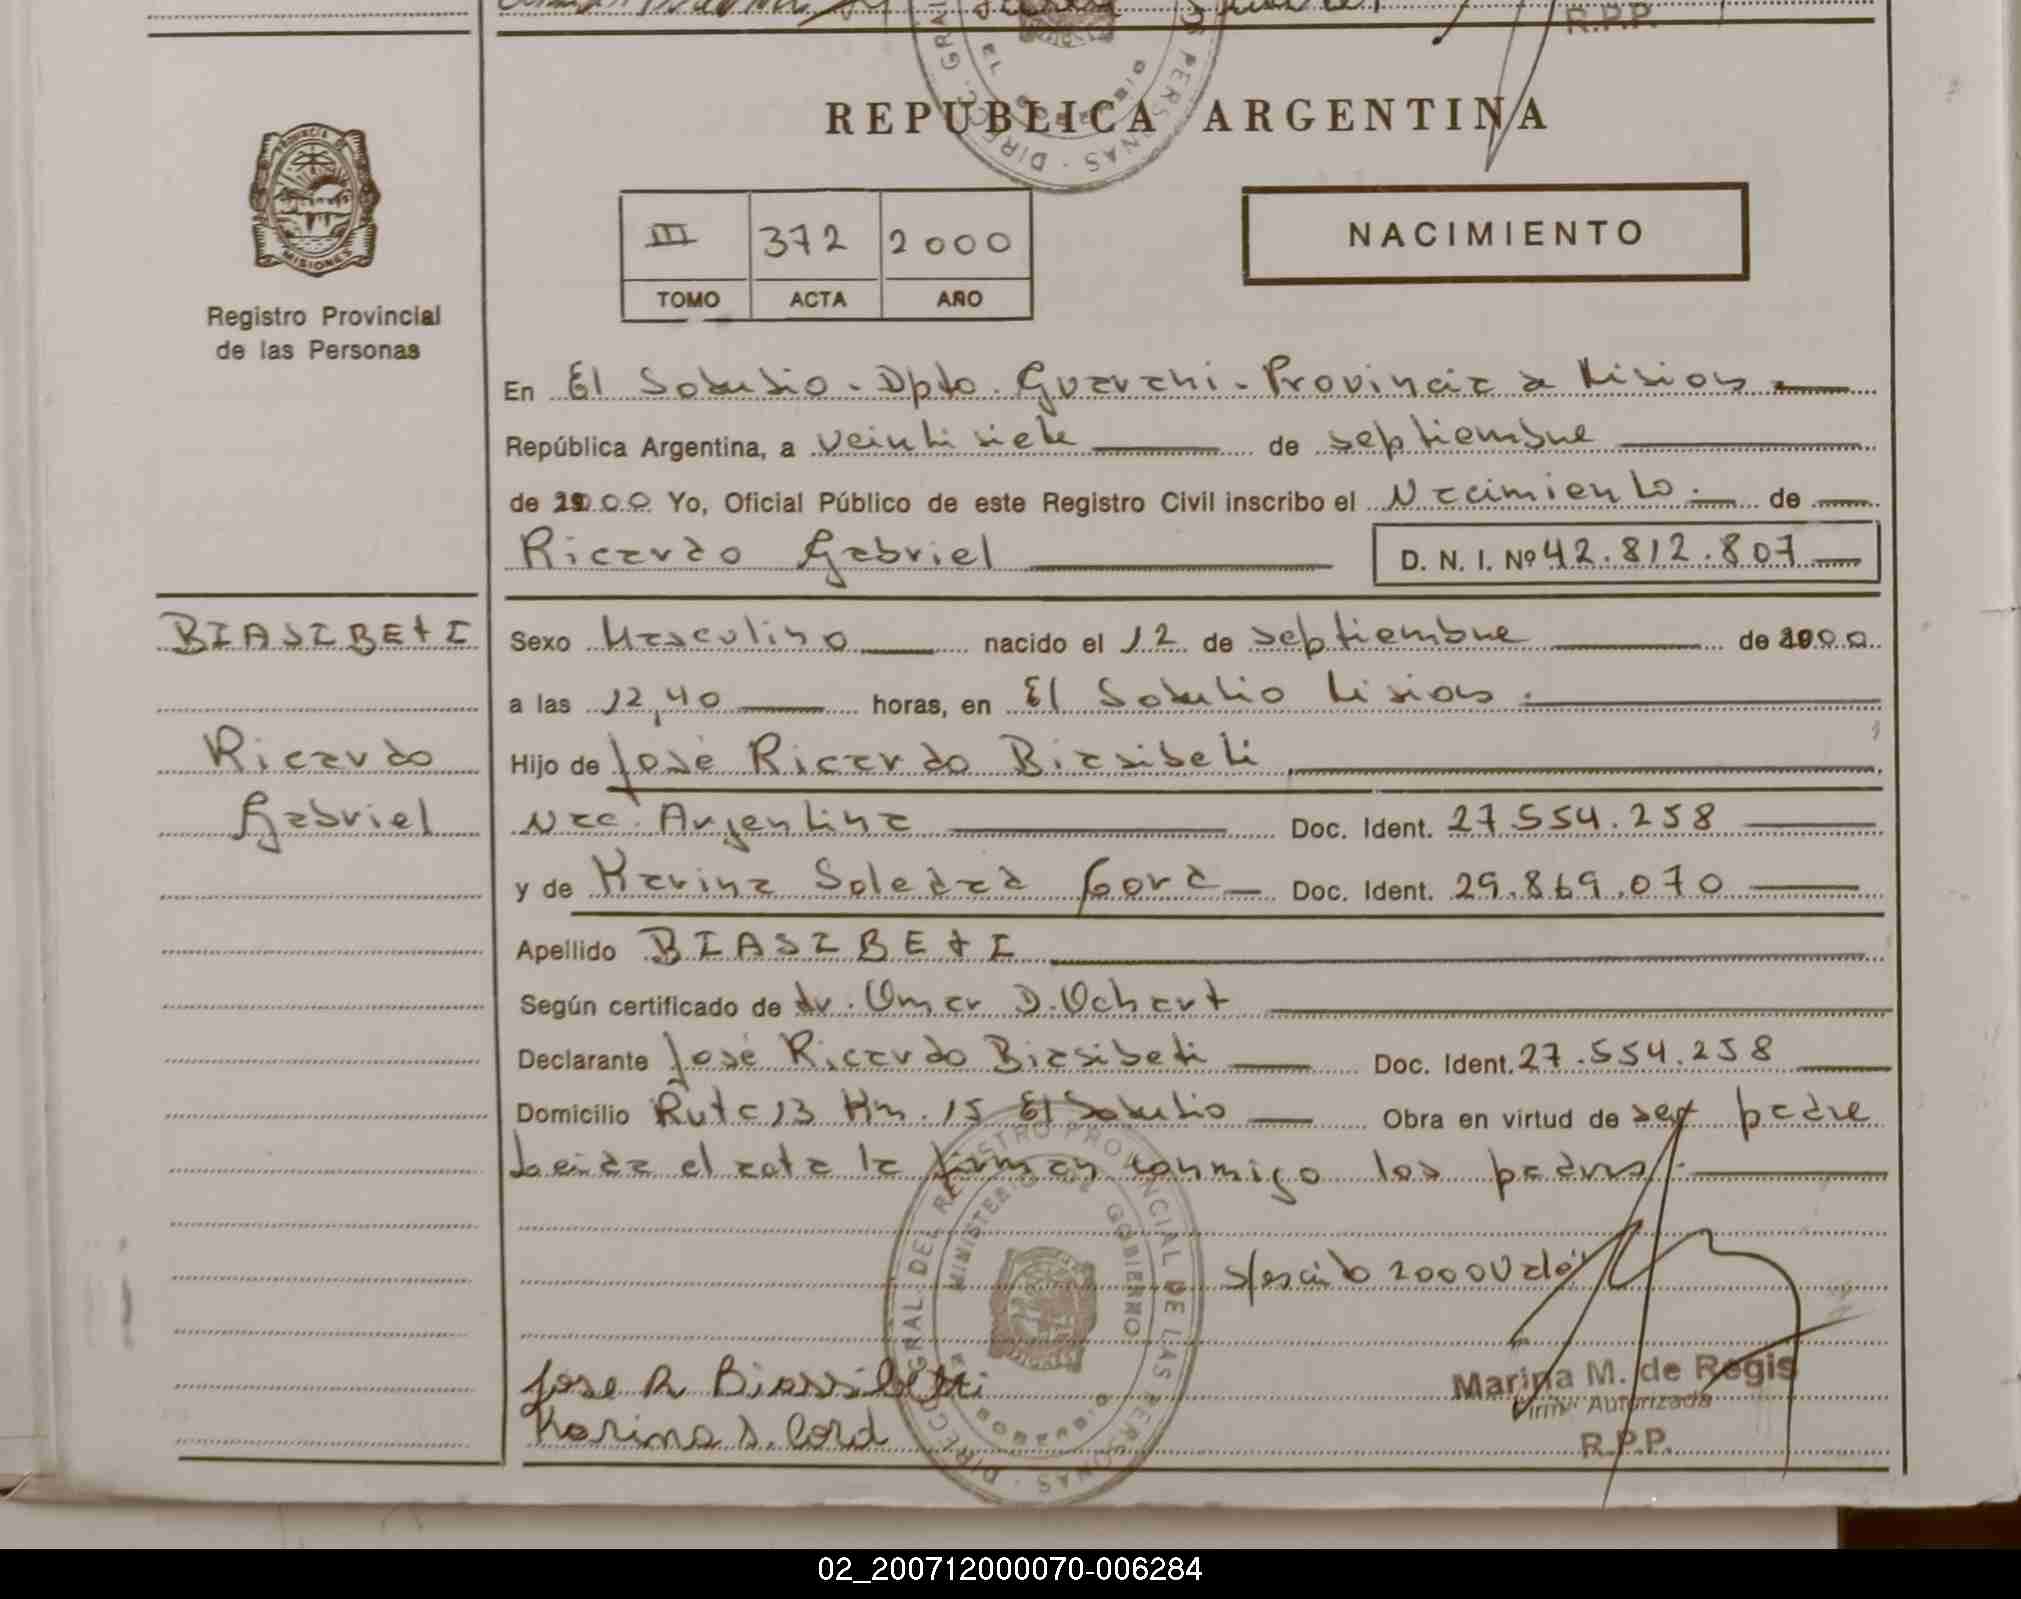 R.P.P.
REPUBLICA ARGENTINA
PROVINCIA DE
MISIONES
Registro Provincial
de las Personas
III 372 2000
TOMO ACTA AÑO
NACIMIENTO
En El Soberbio - Dpto. Guarani - Provincia de Misiones
República Argentina, a veintisiete de septiembre
de 2000 Yo, Oficial Público de este Registro Civil inscribo el Nacimiento. de
Ricardo Gabriel D. N. I. Nº 42.812.807
BIASIBETI
Sexo Masculino nacido el 12 de septiembre de 2000
a las 12,40 horas, en El Soberbio Misiones.
Ricardo
Gabriel
Hijo de José Ricardo Biasibeti
Nac. Argentina Doc. Ident. 27.554.258
y de Karina Soledad Cord Doc. Ident. 29.869.070
Apellido BIASIBETI
Según certificado de dr. Omar D. Ochart
Declarante José Ricardo Biasibeti Doc. Ident. 27.554.258
Domicilio Ruta 13 Km. 15 El Soberbio Obra en virtud de ser padre
Leida el acta la firman conmigo los padres.
DIRECC. GRAL. DEL REGISTRO PROVINCIAL DE LAS PERSONAS
MINISTERIO DE GOBIERNO
EL SOBERBIO
2000 Vale
Jose R Biassibetti
Karina S. Cord
Marina M. de Regis
Firma Autorizada
R.P.P.
02_200712000070-006284